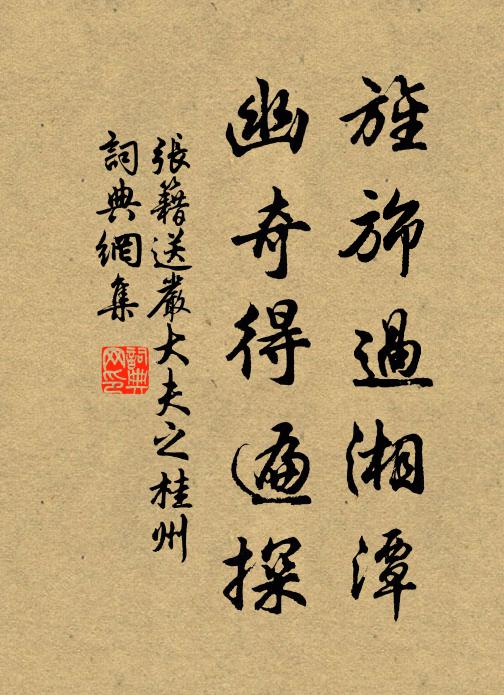 旌旆過湘潭
幽奇得遍探
張籍送嚴大夫之桂州
詞典網集
詞典
网印